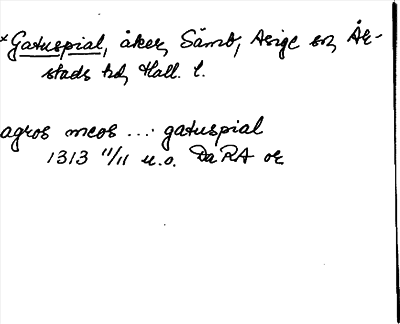 *Gatuspial, åker, Sämb, Asige sn, År-
stads hd, Hall. l.
agros meos ... gatuspial
1313 11/11 u.o. DaRA or